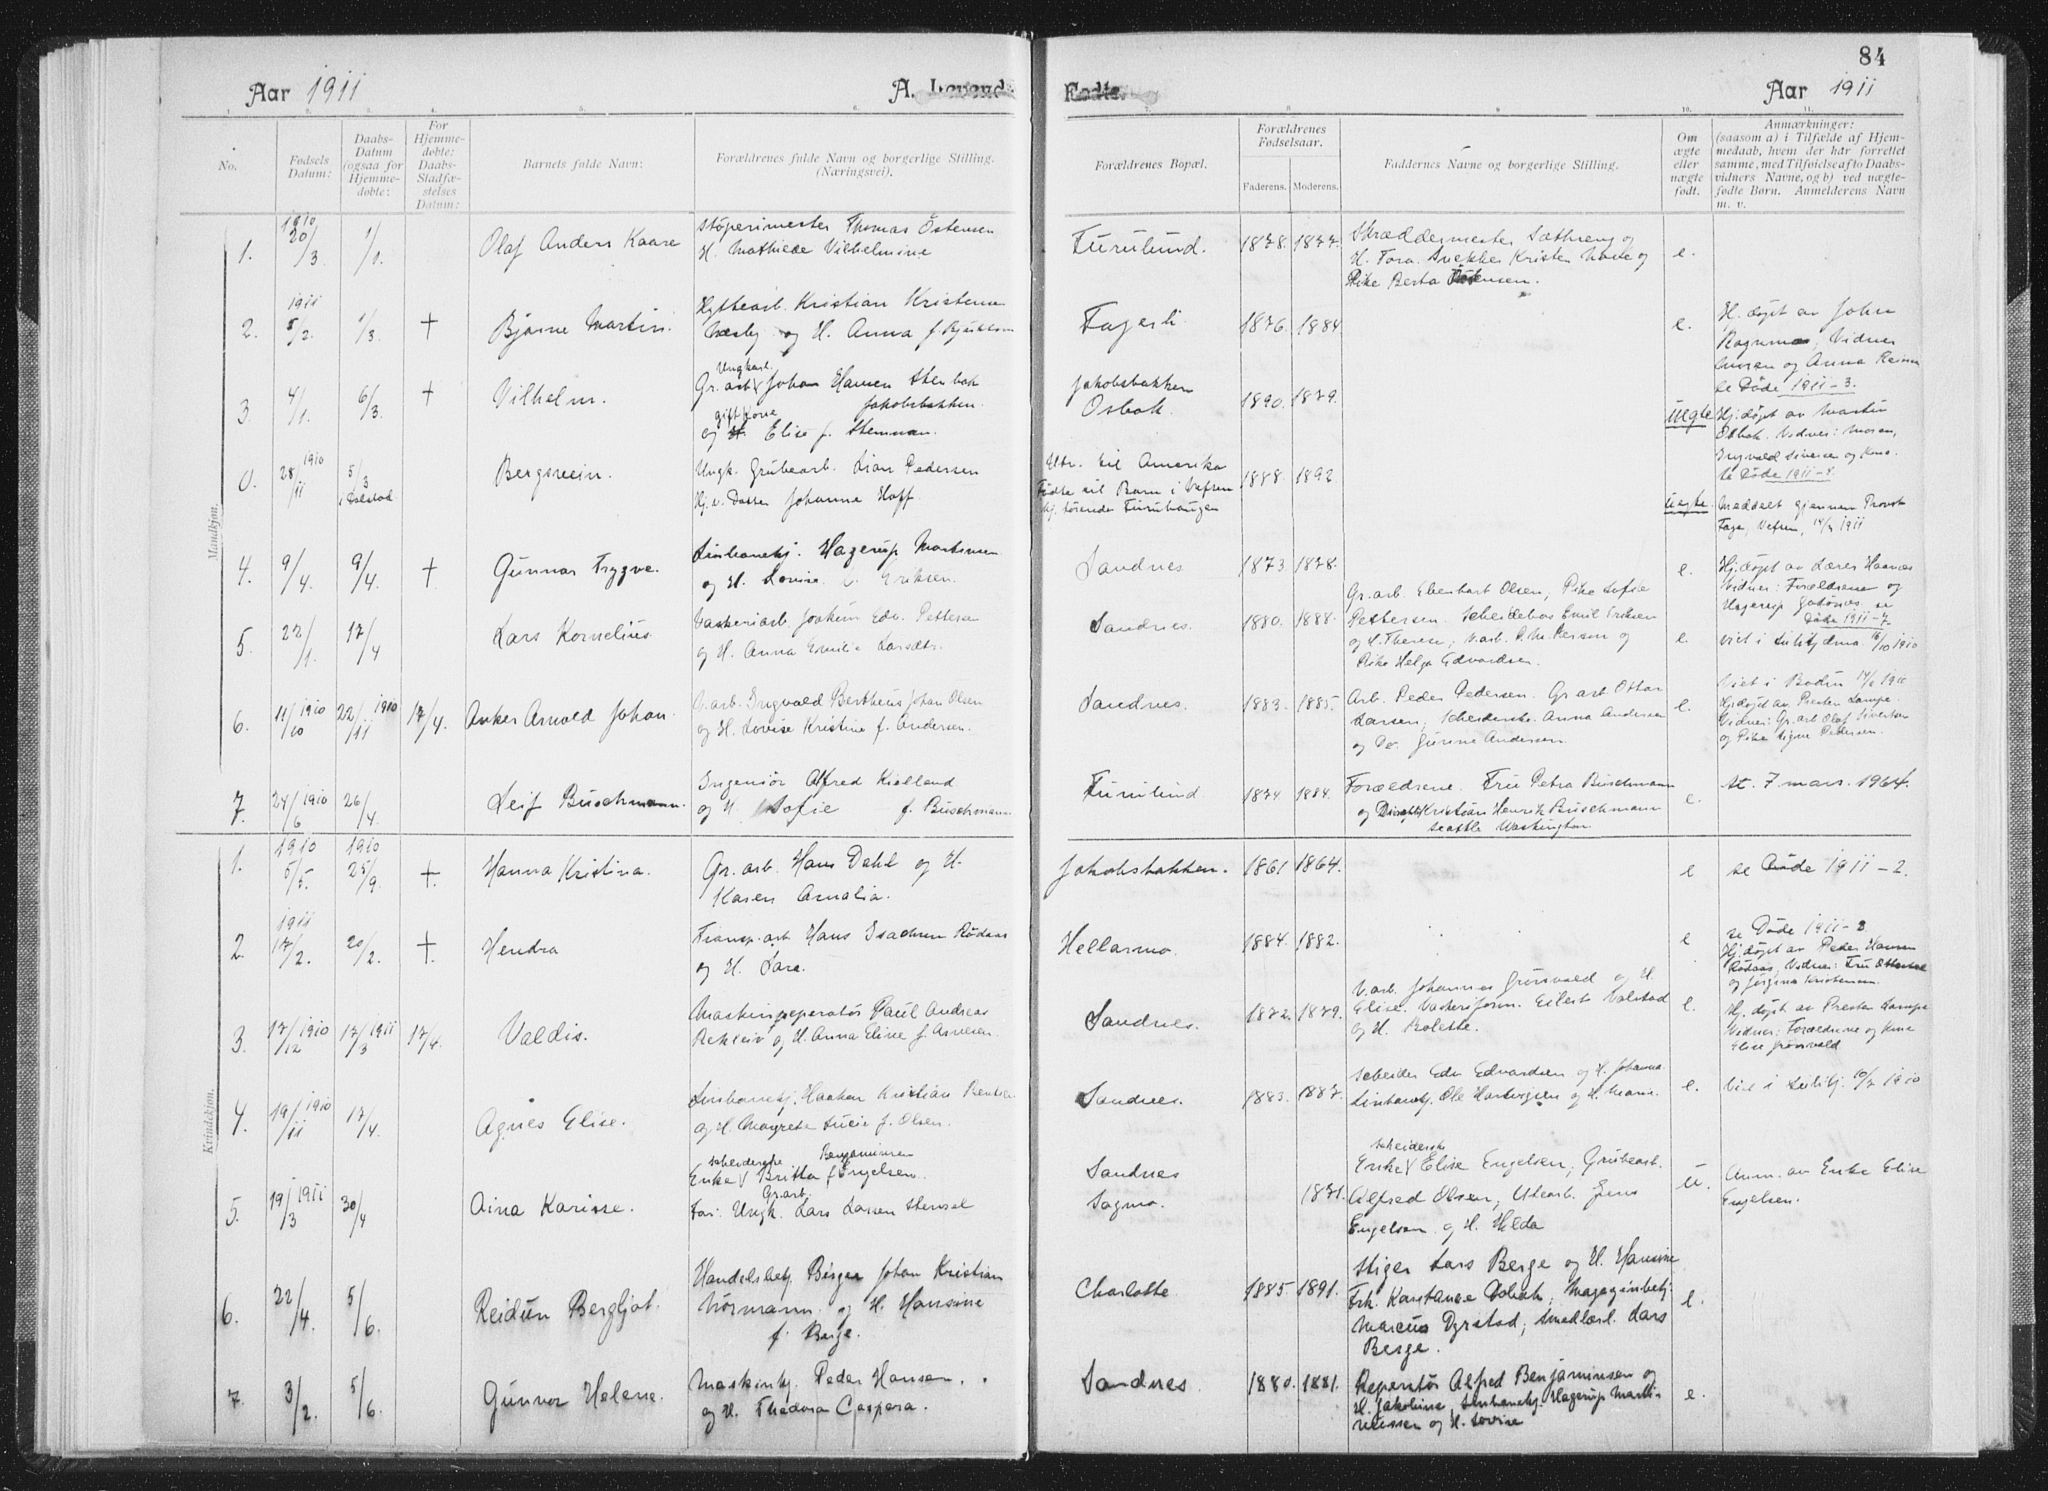 84
Aar 1911
A. Levende
Fødte.
Aar 1911
1. 2. 3. 4. 5. 6. 7. 8. 9. 10. 11.
No.
Fødsels
Datum:
Daabs-
Datum
(ogsaa for
Hjemme-
døbte:
For
Hjemme-
døbte:
Daabs-
Stadfæ-
stelses
Datum:
Barnets fulde Navn:
Forældrenes fulde Navn og borgerlige Stilling.
(Næringsvei).
Forældrenes Bopæl.
Forældrenes
Fødselsaar.
Faderens. Moderens.
Faddernes Navne og borgerlige Stilling.
Om
ægte
eller
uægte
født.
Anmærkninger:
(saasom a) i Tilfælde af Hjem-
medaab, hvem der har forrettet
samme, med Tilføielse af to Daabs-
vidners Navne, og b) ved uægte-
fødte Børn. Anmelderens Navn
m. v.
Mandkjøn.
1. 1910 20/3 1/1.
Olaf Anders Kaare
Støperimester Thomas Østensen
H. Mathilde Vilhelmine
Furulund. 1878. 1877.
Skræddermester Sathreng og
H. Tora. Snekker Kristen og
Pike Berta Østensen.
e.
2. 1911 5/2. 1/3. +
Bjarne Martin.
Hyttearb. Kristian Kristensen
og H. Anna f.
Fagerli 1876. 1884
e.
H. døpt av John
Vidner
og Anna
se Døde 1911-3.
3 4/1. 6/3. +
Vilhelm.
Ungkarl
Gr. arb. Johan Hansen Stenbak
Jakobsbakken.
gift kone
og Elise f. Stemman.
Jakobsbakken
Osbak. 1890. 1879.
uegte
Hj. døpt av Martin
Osbak. Vidner: Moren,
Ingvald Sivertsen og kone.
se Døde 1911-4.
0. 28/11 1910 5/3
Bergsvein.
Ungk. Grubearb. Sian Pedersen
Hj. v. Datter Johanna Hoff
Utv. til Amerika
Fødte sit Barn i Vefsen
hj. hørende Furuhaugen
1888 1892
uegte.
Meddelt gjennem Provst
Fage, Vefsen, 1911
4. 9/4. 9/4. +
Gunnar Trygve.
Linbanebj. Hagerup Martinsen
og H. Lovise Eriksen.
Sandnes 1873 1878.
e.
Hj. døpt av Lærer Haanes
Vidner: Forældrene og
Hagerup
se
Døde 1911-7.
5. 22/1. 17/4
Lars Kornelius
Vaskeriarb. Joakim Edv. Pettersen
og H. Anna Emilie Larsdtr.
Sandnes. 1880. 1888.
Gr. arb. Eberhart Olsen, Pike Sofie
Pettersen. Scheidebas Emil Eriksen
og H. Therese, V. arb. P. M. Persson og
Pike Helga Edvardsen.
e.
viet i Sulitjelma 16/10 1910
6. 11/10 1910 22/11 1910 17/4.
Anker Arnold Johan.
Gr. arb. Ingvald Bertheus Johan Olsen
og H. Lovise Kristine f. Andersen.
Sandnes. 1883. 1885.
Arb. Peder Pedersen. Gr. arb Ottar
Larsen, Scheiderske Anna Andersen
og Do. Gunna Andersen
e.
Viet i Bodin 1910
Hj. døpt av Presten Lampe
Vidner: Gr. arb Olaf Sivertsen
og Pike Signe Pedersen.
7. 24/6 1910 26/4.
Leif Buschmann.
Ingeniør Alfred Kielland
og H. Sofie f. Buschmann
Furulund 1874 1884.
Forældrene. Fru Petra Buschmann
og Kristian Henrik Buschmann
Seattle Washington
e.
At. 7 mars. 1964.
Kvindekjøn.
1. 1910 5/5. 1910 25/9. +.
Hanna Kristina.
Gr. arb. Hans Dahl og H.
Karen Amalia.
Jakobsbakken. 1861 1864.
e
se Døde 1911-2.
2. 1911 17/2. 20/2. +.
Hendra
Transp. arb. Hans Isachsen Rødaas
og H. Sara.
Hellarmo 1884. 1882.
e
se Døde 1911-3.
Hj. døpt av Peder Hansen
Rødaas, Vidner: Fru
og Jørgina Kristensen.
3. 17/12 1910 17/3 1911 17/4.
Valdis.
Maskinreperatør Paul Andreas
og H. Anna Elise f. Arnesen
Sandnes. 1872. 1879.
V. arb. Johannes Grønvald og H.
Elise. Vaskeriform. Eilert Valstad
og H. Bolette.
e.
Hj. døpt av Presten Lampe
Vidner: Forældrene og kone
Elise Grønvald
4. 19/11 1910 17/4.
Agnes Elise.
Linbanebj. Haakon Kristian Bentsen
og H. Magrete Lucie f. Olsen.
Sandnes. 1883. 1887.
Scheider Edv Edvardsen og H. Johanna.
Linbanebj. Ole Hartvigsen og H. Marie.
e.
Viet i Sulitj. 1910
5. 19/3 1911 30/4
Aina Karisse.
scheiderske Benjaminsen
Enke Britta f. Engelsen.
Gr. arb.
Far: Ungk. Lars Larsen Stensel
Sandnes
Sagmo. 1871.
scheiderske
Enke Elise Engelsen, Grubearb.
Alfred Olsen, Utearb. Jens
Engelsen og H. Hilda
u.
Anm. av Enke Elise
Engelsen.
6. 22/4. 5/6.
Reidun Bergljot.
Handelsbetj. Birger Johan Kristian
Normann og H. Hansine
f. Berge.
Charlotte 1885. 1891.
Stiger Lars Berge og H. Hansine
Frk. Konstance Osbak, Magasinbetj.
Marcus Dyrstad, Smedlærl. Lars
Berge.
e.
7. 3/2. 5/6.
Gunvor Helene.
Maskinbj. Peder Hansen.
og H. Thedora Caspara.
Sandnes 1880. 1881.
Reperatør Alfred Benjaminsen og
H. Jakobine, Linbanebj. Hagerup Marti-
nussen og H. Lovise
e.